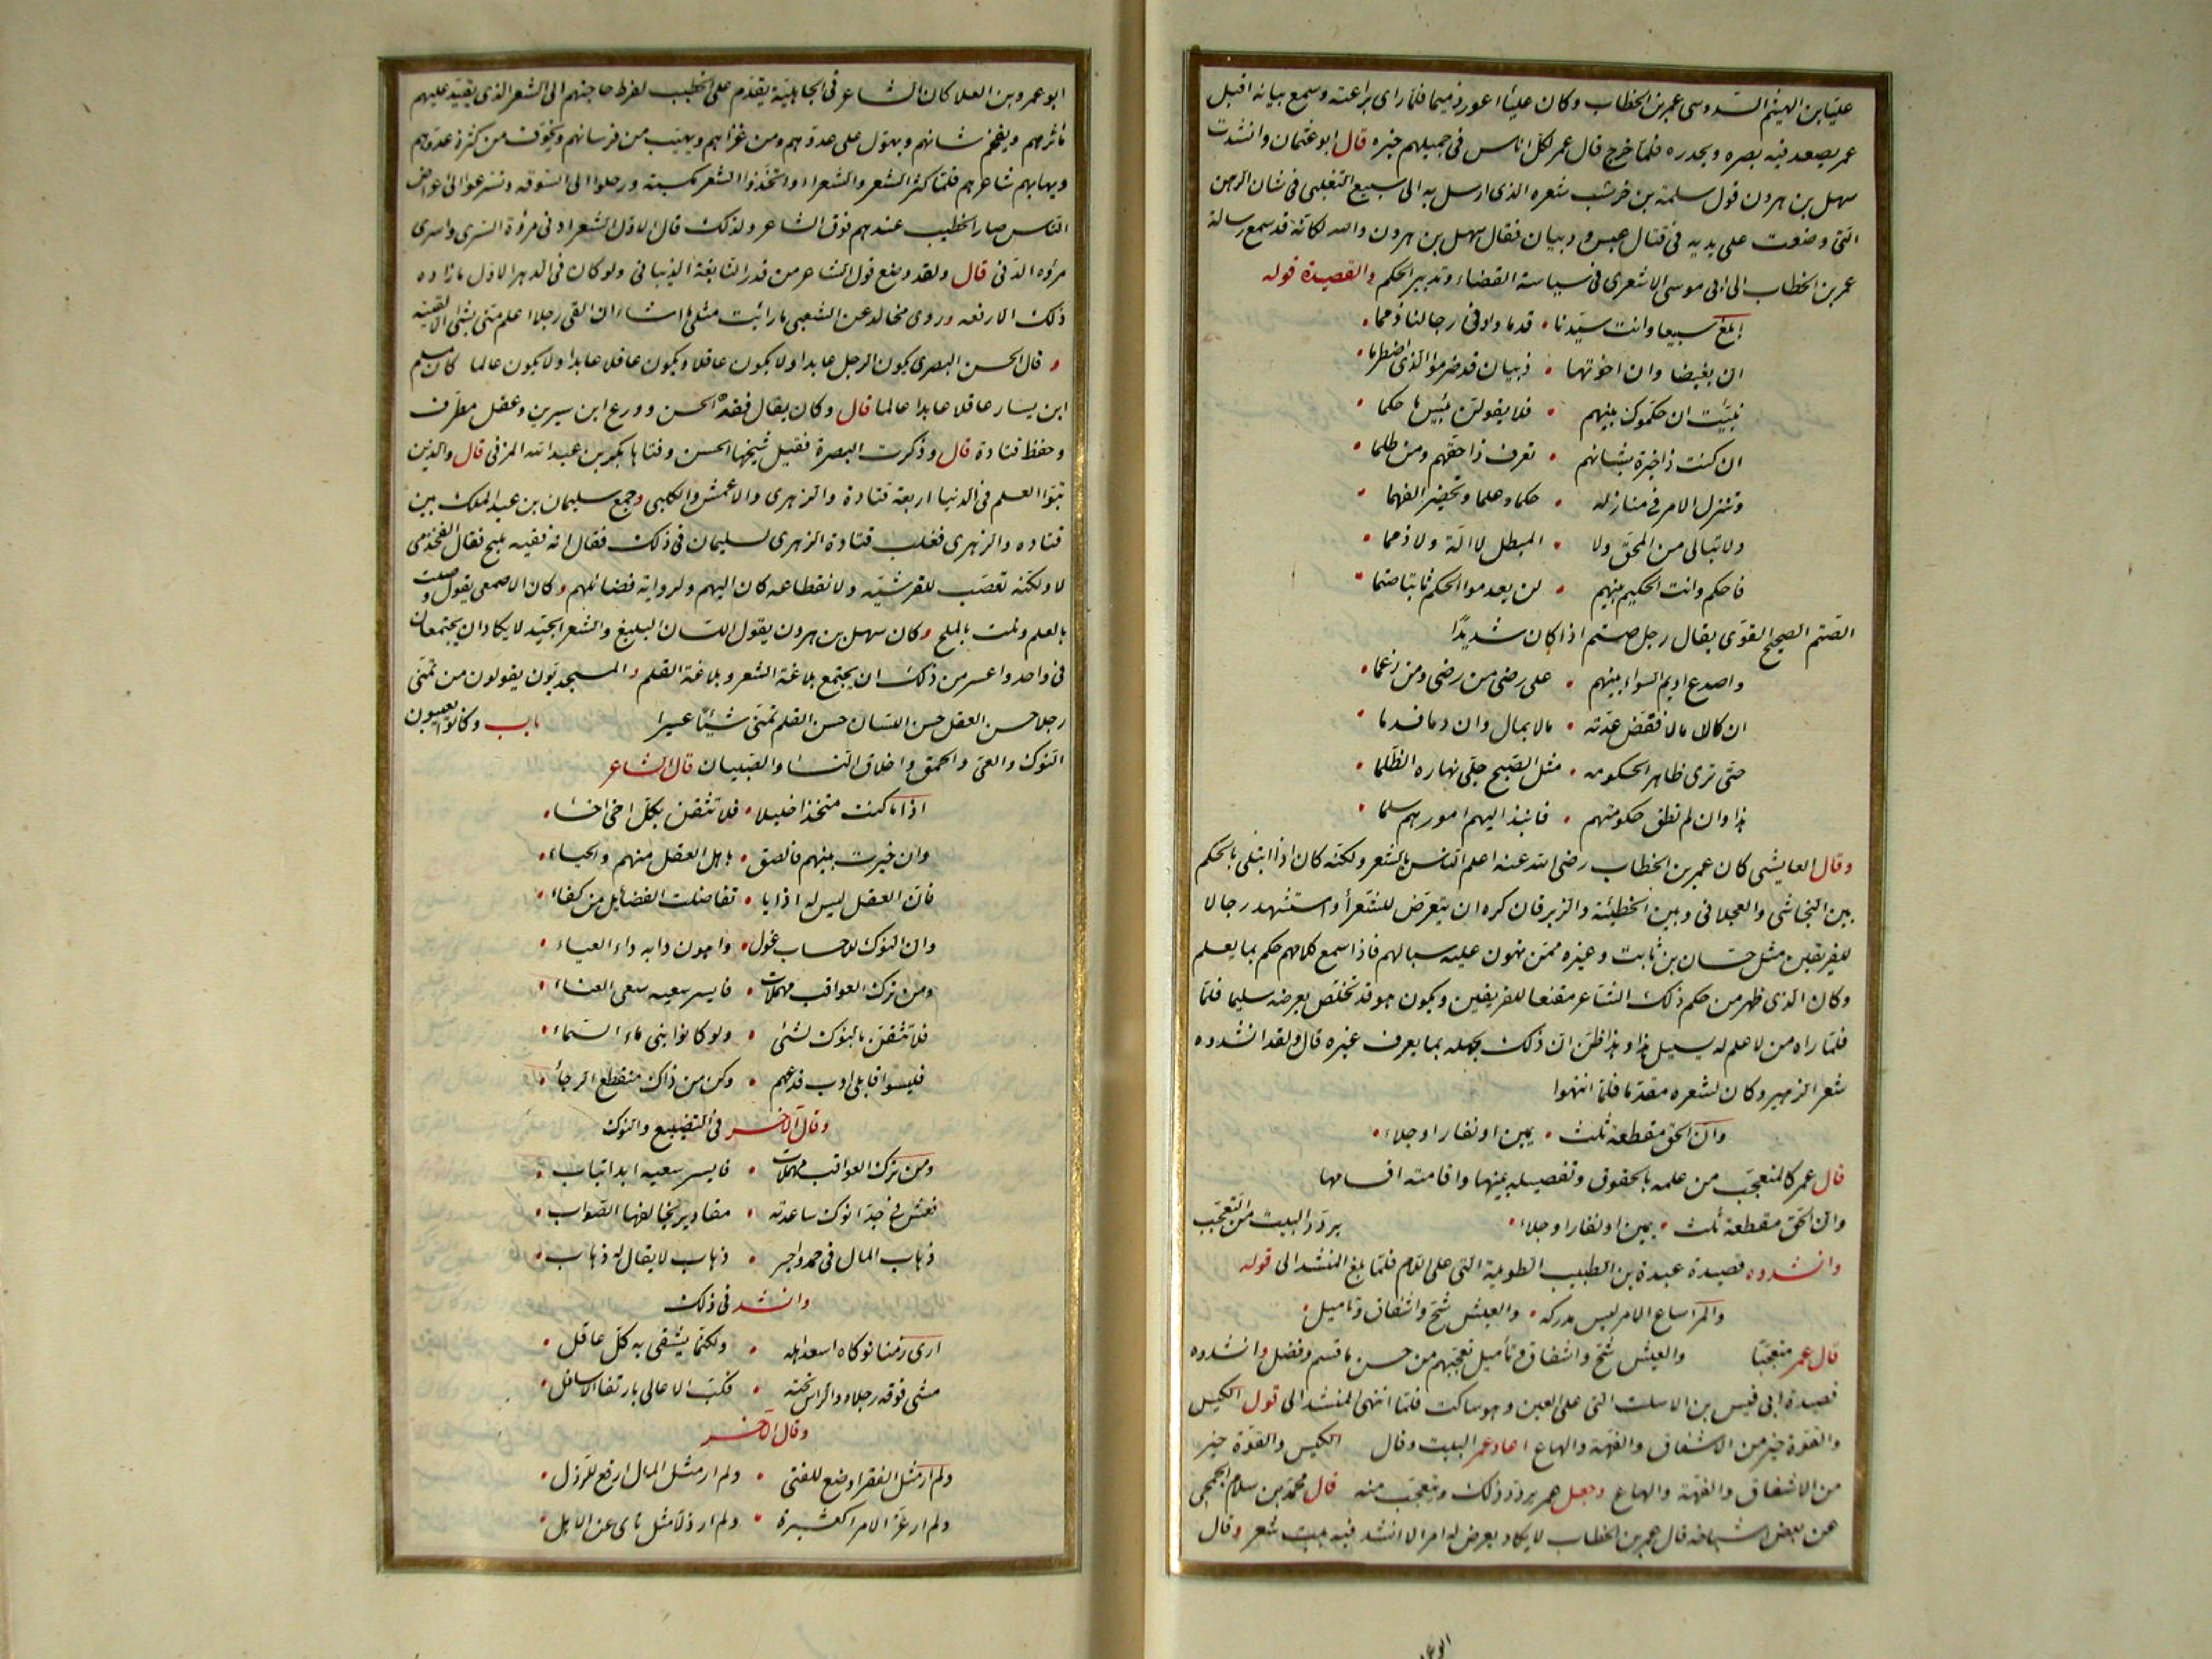 علباء بن الهيثم السدوسى عمر بن الخطاب وكان علباء اعور ذميما فلما راى براعته وسمع بيانه اقبل
عمر يصعد فيه بصره ويحدره فلما خرج قال عمر لكل اناس فى جميلهم خبره قال ابو عثمان وانشدت
سهل بن هرون قول سلمة بن خرشب شعره الذى ارسل به الى سبيع التغلبى فى شان الرهن
التى وضعت على يديه فى قتال عبس وذبيان فقال سهل بن هرون والله لكانه قد سمع رسالة
عمر بن الخطاب الى ابى موسى الاشعرى فى سياسة القضاء وتدبير الحكم والقصيدة قوله
ابلغ سبيعا وانت سيدنا • قدما واوفى رجالنا ذمما •
ان بغيضا وان اخوتها • ذبيان قد ضرموا الذى اضطرما •
نبيت ان حكموك بينهم • فلا يقولن بئيس ما حكما •
ان كنت ذا خبرة بشانهم • تعرف ذا حقهم ومن ظلما •
وتنزل الامر فى منازله • حكما وعلما وتحضر الفهما •
ولا تبالى من المحق ولا • المبطل لا الة ولا ذمما •
فاحكم وانت الحكيم بينهم • لن يعدموا الحكم ثابتا صتما •
الصتم الصحيح القوى يقال رجل صتم اذا كان شديدا
واصدع اديم السواء بينهم • على رضى من رضى ومن زعما •
ان كان مالا فقض عدته • مالا بمال وان دما فدما •
حتى ترى ظاهر الحكومه • مثل الصبح جلى نهاره الظلما •
هذا وان لم تطق حكومتهم • فانبذ اليهم امورهم سلما •
وقال العايشى كان عمر بن الخطاب رضى الله عنه اعلم الناس بالشعر ولكنه كان اذا ابتلى بالحكم
بين النجاشى والعجلانى وبين الحطيئة والزبرقان كره ان يتعرض للشعرا واستشهد رجالا
للفريقين مثل حسان بن ثابت وغيره ممن تهون عليه سبالهم فاذا سمع كلامهم حكم بما يعلم
وكان الذى ظهر من حكم ذلك الشاعر مقنعا للفريقين ويكون هو قد تخلص بعرضه سليما فلما
فلما راه من لا علم له يسيل هذا وهذا ظن ان ذلك بجهله بما يعرف غيره قال ولقد انشدوه
شعر الزهير وكان لشعره مقدما فلما انتهوا
وان الحق مقطعه ثلث • يمين او نفار او جلاء •
قال عمر كالمتعجب من علمه بالحقوق وتفصيله بينها واقامته اقسامها
وان الحق مقطعة ثلث • يمين او نفار او جلاء • يردد البيت من التعجب
وانشدوه قصيدة عبدة بن الطبيب الطويلة التى على اللام فلما بلغ المنشد الى قوله
والمرء ساع لامر ليس مدركه • والعيش شح واشفاق وتاميل •
قال عمر متعجبا والعيش شح واشفاق وتأميل تعجبهم من حسن ما قسم وفضل وانشدوه
قصيدة ابى قيس بن الاسلت التى على العين وهو ساكت فلما انتهى المنشد الى قول الكيس
والقوة خير من الاشفاق والفهة والهاع اعاد عمر البيت وقال الكيس والقوة خير
من الاشفاق والفهة والهاع وجعل عمر يردد ذلك ويتعجب منه قال محمد بن سلام الجمحى
عن بعض اشياخه قال عمر بن الخطاب لا يكاد يعرض له امر الا انشد فيه بيت شعر وقال
ابو عمرو بن العلا كان الشاعر فى الجاهلية يقدم على الخطيب لفرط حاجتهم الى الشعر الذى يقيد عليهم
مأثرهم ويفخم شانهم ويهول على عدوهم ومن غزاهم ويهيب من فرسانهم ويخوف من كثرة عددهم
ويهابهم شاعرهم فلما كثر الشعر والشعراء واتخذوا الشعر مكسبة ورحلوا الى السوقه وتسرعوا الى اعراض
الناس صار الخطيب عندهم فوق الشاعر ولذلك قال الاول الشعر ادنى مروة السرى واسرى
مروه الدنى قال ولقد وضع قول الشعر من قدر النابغة الذبيانى ولو كان فى الدهر الاول مازاده
ذلك الا رفعه وروى مخالد عن الشعبى ما رايت مثلى ما اشاء ان القى رجلا اعلم منى بشئ الا لقيته
و قال الحسن البصرى يكون الرجل عابدا ولا يكون عاقلا ويكون عاقلا عابدا ولا يكون عالما كان مسلم
ابن يسار عاقلا عابدا عالما قال وكان يقال فقه الحسن وورع ابن سيرين وعقل مطرف
وحفظ قتادة قال وذكرت البصرة فقيل شيخها الحسن وفتاها بكر بن عبد الله المزنى قال والذين
بثوا العلم فى الدنيا اربعة قتادة والزهرى والاعمش والكلبى وجمع سليمان بن عبد الملك بين
قتاده والزهرى فغلب قتادة الزهرى لسليمان فى ذلك فقال انه فقيه مليح فقال القحذمى
لا ولكنه تعصب للقرشيه ولانقطاعه كان اليهم ولروايته فضائلهم وكان الاصمعى يقول وصلت
بالعلم ونلت بالملح وكان سهل بن هرون يقول اللسان البليغ والشعر الجيد لا يكادان يجتمعان
فى واحد واعسر من ذلك ان يجتمع بلاغة الشعر وبلاغة القلم والمسجديون يقولون من تمنى
رجلا حسن العقل حسن اللسان حسن القلم تمنى شيئا عسيرا باب وكانوا يعيبون
النوك والعى والحمق واخلاق النساء والصبيان قال الشاعر
اذا ما كنت متخذا خليلا • فلا تثقن بكل اخى اخاء •
وان خيرت بينهم فالصق • باهل العقل منهم والحياء •
فان العقل ليس له اذا ما • تفاضلت الفضايل من كفاء •
وان النوك للاحساب غول • واهون دابه داء العياء •
ومن ترك العواقب مهملات • فايسر سعيه سعى العناء •
فلا تثقن بالنوك لشئ • ولو كانوا بنى ماء السماء •
فليسوا قابلى ادب فدعهم • وكن من ذاك منقطع الرجاء •
وقال الاخر فى التضييع والنوك
ومن ترك العواقب مهملات • فايسر سعيه ابدا تباب •
فعش فى جد انوك ساعدته • مقادير يخالفها الصواب •
ذهاب المال فى حمد واجر • ذهاب لا يقال له ذهاب •
وانشد فى ذلك
ارى زمنا نوكاه اسعد اهله • ولكنما يشقى به كل عاقل •
مشى فوقه رجلاه والراس تحته • فكب الاعالى بارتفاع الاسافل •
وقال الاخر
ولم ار مثل الفقر اوضع للفتى • ولم ار مثل المال ارفع للرذل •
ولم ار عز الامرا كعشيرة • ولم ار ذلا مثل ناى عن الاهل •